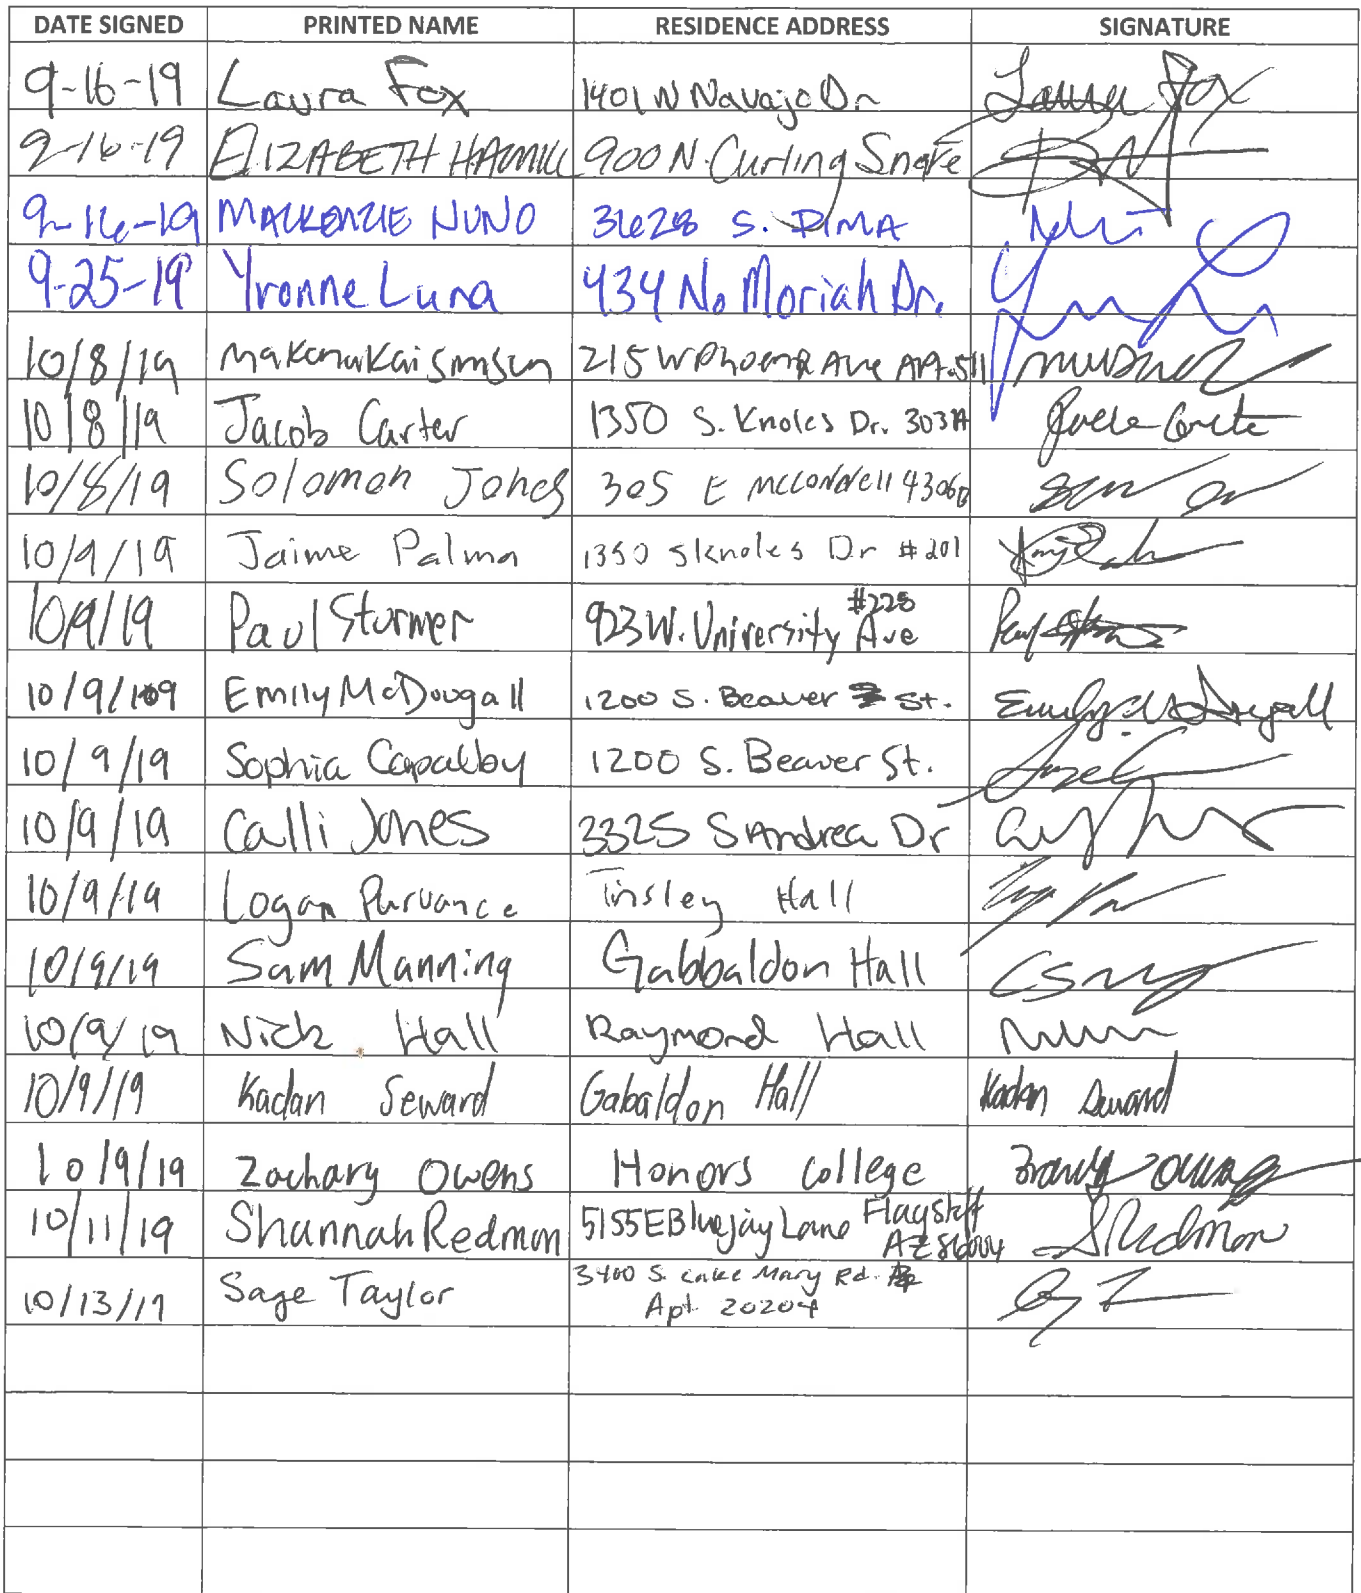 DATE SIGNED PRINTED NAME RESIDENCE ADDRESS SIGNATURE
9-16-19 Laura Fox 1401 W Navajo Dr Laura Fox
9-16-19 ELIZABETH HAMILL 900 N. Curling Smoke
9-16-19 MACKENZIE NUNO 3628 S. PIMA
9-25-19 Yvonne Luna 434 No Moriah Dr.
10/8/19 215 W Phoenix Ave APT. 511
10/8/19 Jacob Carter 1350 S. Knoles Dr. 303A
10/8/19 Solomon Jones 305 E McConnell 4306B
10/9/19 Jaime Palma 1350 S Knoles Dr #201
10/9/19 Paul Sturmer 923 W. University Ave #225
10/9/19 Emily McDougall 1200 S. Beaver St. Emily McDougall
10/9/19 Sophia Capalby 1200 S. Beaver St.
10/9/19 Calli Jones 3325 S Andrea Dr
10/9/19 Logan Purvance Tinsley Hall
10/9/19 Sam Manning Gabbaldon Hall
10/9/19 Nick Hall Raymond Hall
10/9/19 Kadan Seward Gabaldon Hall Kadan Seward
10/9/19 Zachary Owens Honors College
10/11/19 Shannah Redmon 5155 E Bluejay Lane Flagstaff AZ 86004 SRedmon
10/13/19 Sage Taylor 3400 S. Lake Mary Rd.
Apt 20204